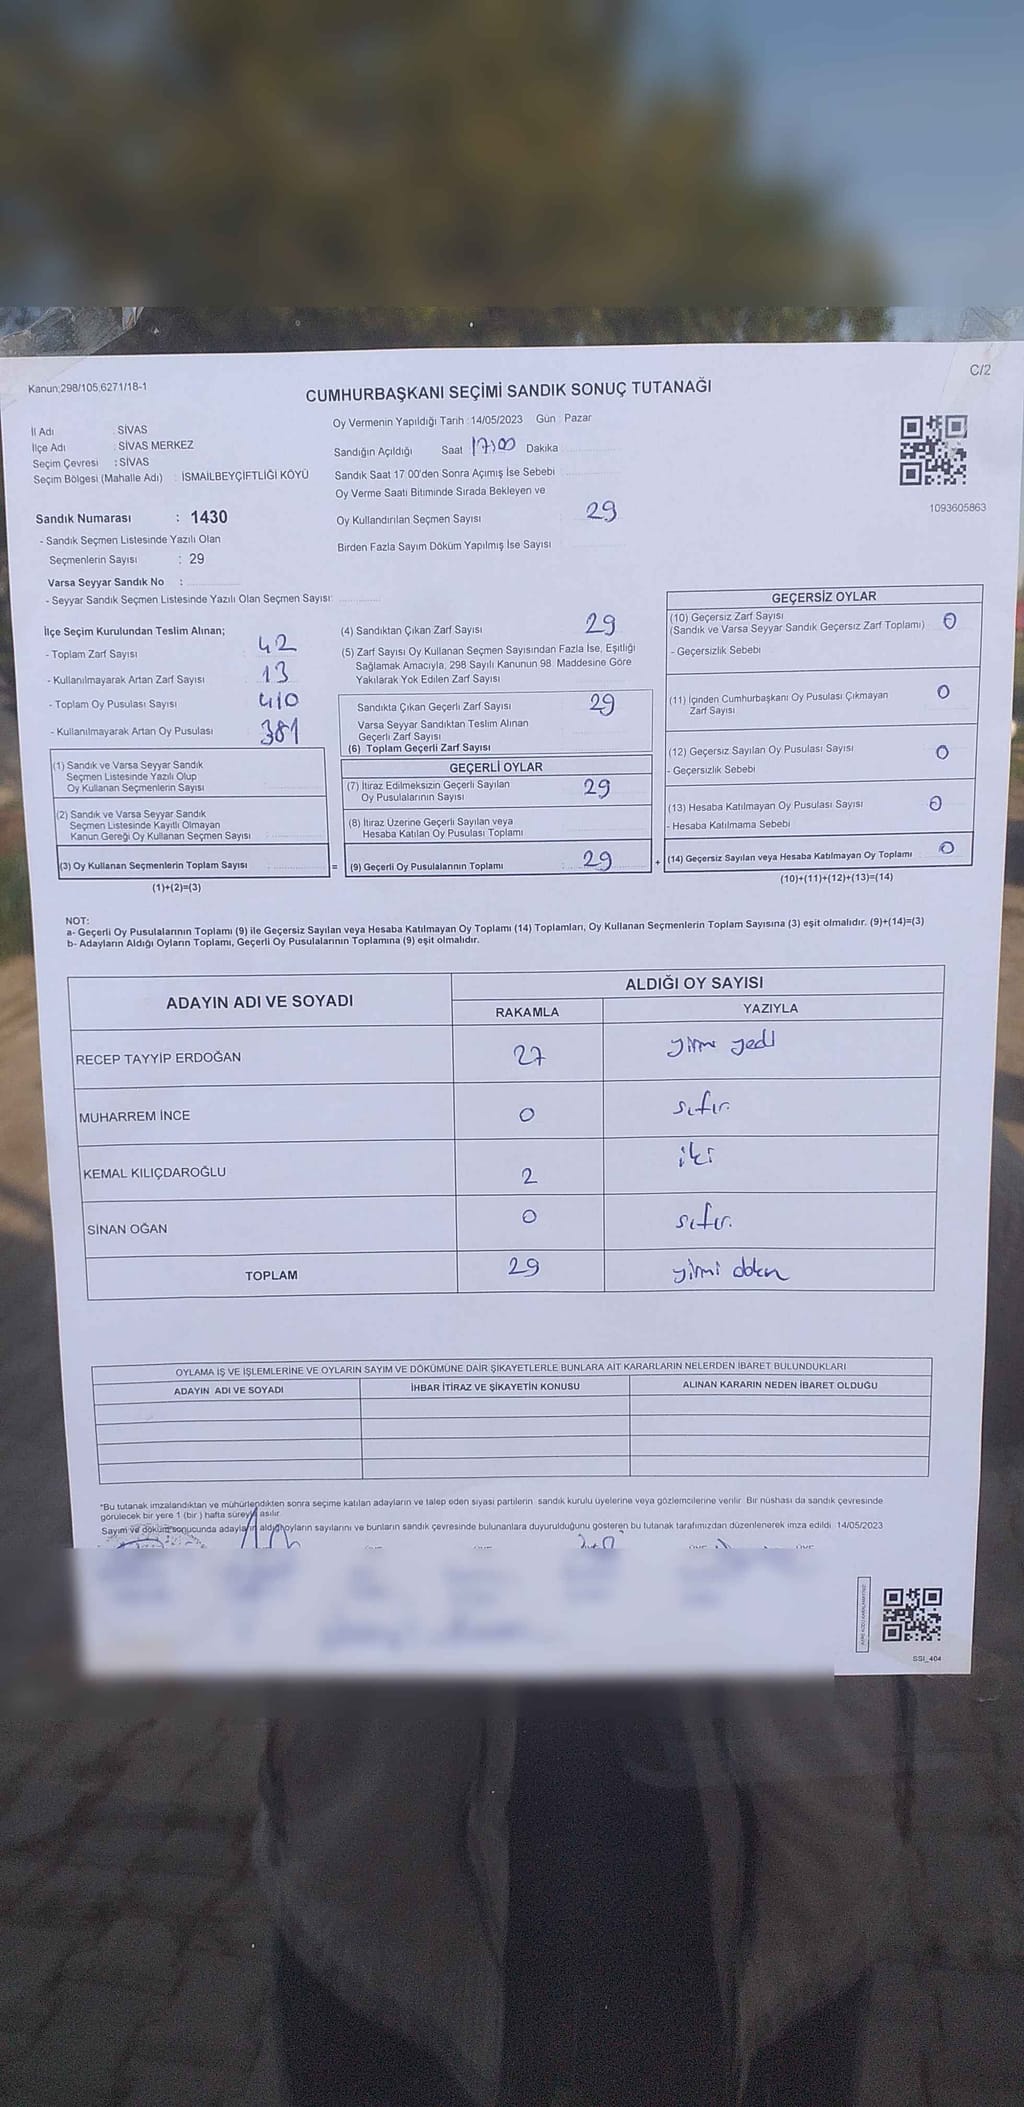 Kanun;298/105,6271/18-1
C/2
CUMHURBAŞKANI SEÇİMİ SANDIK SONUÇ TUTANAĞI
İl Adı : SİVAS
İlçe Adı : SİVAS MERKEZ
Seçim Çevresi : SİVAS
Seçim Bölgesi (Mahalle Adı) : İSMAİLBEYÇİFTLİĞİ KÖYÜ
Sandık Numarası : 1430
- Sandık Seçmen Listesinde Yazılı Olan
Seçmenlerin Sayısı : 29
Varsa Seyyar Sandık No :
- Seyyar Sandık Seçmen Listesinde Yazılı Olan Seçmen Sayısı:
Oy Vermenin Yapıldığı Tarih : 14/05/2023 Gün : Pazar
Sandığın Açıldığı Saat 17:00 Dakika
Sandık Saat 17:00'den Sonra Açımış İse Sebebi
Oy Verme Saati Bitiminde Sırada Bekleyen ve
Oy Kullandırılan Seçmen Sayısı 29
Birden Fazla Sayım Döküm Yapılmış İse Sayısı
1093605863
İlçe Seçim Kurulundan Teslim Alınan;
- Toplam Zarf Sayısı 42
- Kullanılmayarak Artan Zarf Sayısı 13
- Toplam Oy Pusulası Sayısı 410
- Kullanılmayarak Artan Oy Pusulası 381
(1) Sandık ve Varsa Seyyar Sandık
Seçmen Listesinde Yazılı Olup
Oy Kullanan Seçmenlerin Sayısı
(2) Sandık ve Varsa Seyyar Sandık
Seçmen Listesinde Kayıtlı Olmayan
Kanun Gereği Oy Kullanan Seçmen Sayısı
(3) Oy Kullanan Seçmenlerin Toplam Sayısı
(1)+(2)=(3)
(4) Sandıktan Çıkan Zarf Sayısı 29
(5) Zarf Sayısı Oy Kullanan Seçmen Sayısından Fazla İse, Eşitliği
Sağlamak Amacıyla, 298 Sayılı Kanunun 98. Maddesine Göre
Yakılarak Yok Edilen Zarf Sayısı
Sandıkta Çıkan Geçerli Zarf Sayısı 29
Varsa Seyyar Sandıktan Teslim Alınan
Geçerli Zarf Sayısı
(6) Toplam Geçerli Zarf Sayısı
GEÇERLİ OYLAR
(7) İtiraz Edilmeksizin Geçerli Sayılan
Oy Pusulalarının Sayısı 29
(8) İtiraz Üzerine Geçerli Sayılan veya
Hesaba Katılan Oy Pusulası Toplamı
= (9) Geçerli Oy Pusulalarının Toplamı 29
GEÇERSİZ OYLAR
(10) Geçersiz Zarf Sayısı 0
(Sandık ve Varsa Seyyar Sandık Geçersiz Zarf Toplamı)
- Geçersizlik Sebebi
(11) İçinden Cumhurbaşkanı Oy Pusulası Çıkmayan 0
Zarf Sayısı
(12) Geçersiz Sayılan Oy Pusulası Sayısı 0
- Geçersizlik Sebebi
(13) Hesaba Katılmayan Oy Pusulası Sayısı 0
- Hesaba Katılmama Sebebi
+ (14) Geçersiz Sayılan veya Hesaba Katılmayan Oy Toplamı 0
(10)+(11)+(12)+(13)=(14)
NOT:
a- Geçerli Oy Pusulalarının Toplamı (9) ile Geçersiz Sayılan veya Hesaba Katılmayan Oy Toplamı (14) Toplamları, Oy Kullanan Seçmenlerin Toplam Sayısına (3) eşit olmalıdır. (9)+(14)=(3)
b- Adayların Aldığı Oyların Toplamı, Geçerli Oy Pusulalarının Toplamına (9) eşit olmalıdır.
ADAYIN ADI VE SOYADI
ALDIĞI OY SAYISI
RAKAMLA YAZIYLA
RECEP TAYYİP ERDOĞAN 27 yirmi yedi
MUHARREM İNCE 0 sıfır
KEMAL KILIÇDAROĞLU 2 iki
SİNAN OĞAN 0 sıfır.
TOPLAM 29 yirmi dokuz
OYLAMA İŞ VE İŞLEMLERİNE VE OYLARIN SAYIM VE DÖKÜMÜNE DAİR ŞİKAYETLERLE BUNLARA AİT KARARLARIN NELERDEN İBARET BULUNDUKLARI
ADAYIN ADI VE SOYADI İHBAR İTİRAZ VE ŞİKAYETİN KONUSU ALINAN KARARIN NEDEN İBARET OLDUĞU
*Bu tutanak imzalandıktan ve mühürlendikten sonra seçime katılan adayların ve talep eden siyasi partilerin sandık kurulu üyelerine veya gözlemcilerine verilir. Bir nüshası da sandık çevresinde
görülecek bir yere 1 (bir ) hafta süreyle asılır.
Sayım ve döküm sonucunda adayların aldığı oyların sayılarını ve bunların sandık çevresinde bulunanlara duyurulduğunu gösteren bu tutanak tarafımızdan düzenlenerek imza edildi. 14/05/2023
SSI_404